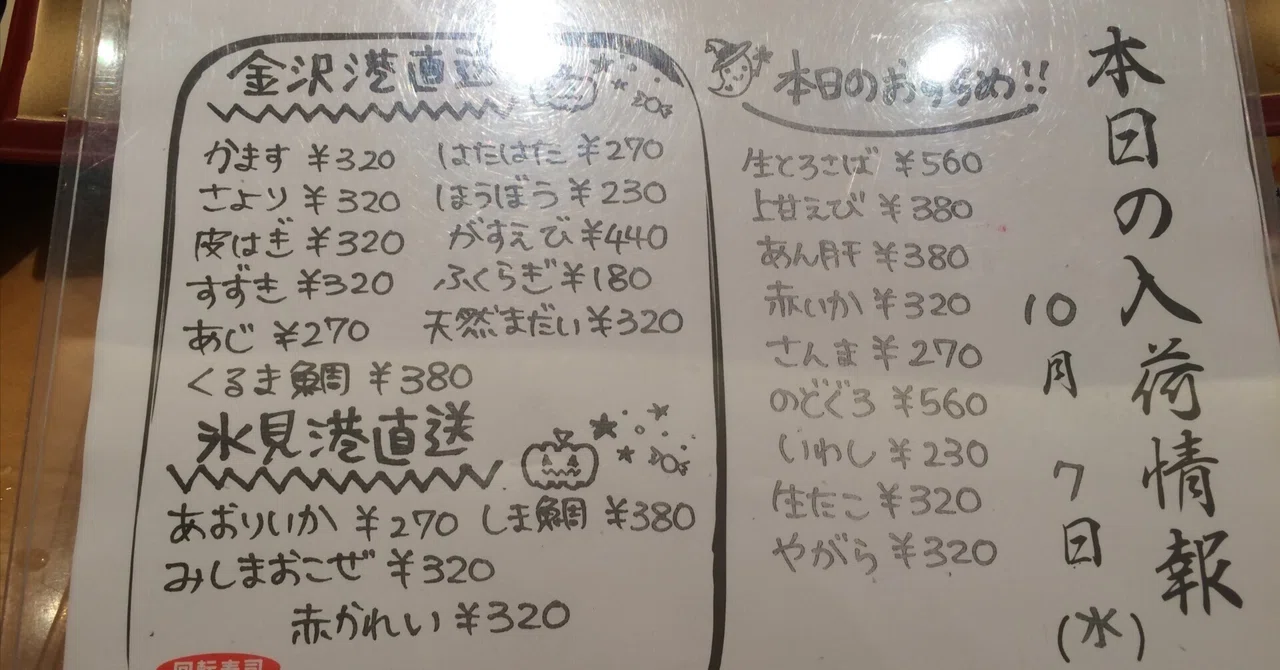 本日の入荷情報
10月7日(水)
本日のおすすめ!!
生とろさば ¥560
上甘えび ¥380
あん肝 ¥380
赤いか ¥320
さんま ¥270
のどぐろ ¥560
いわし ¥230
生たこ ¥320
やがら ¥320
金沢港直送
かます ¥320 はたはた ¥270
さより ¥320 ほうぼう ¥230
皮はぎ ¥320 がすえび ¥440
すずき ¥320 ふくらぎ ¥180
あじ ¥270 天然まだい ¥320
くるま鯛 ¥380
氷見港直送
あおりいか ¥270 しま鯛 ¥380
みしまおこぜ ¥320
赤かれい ¥320
回転寿司